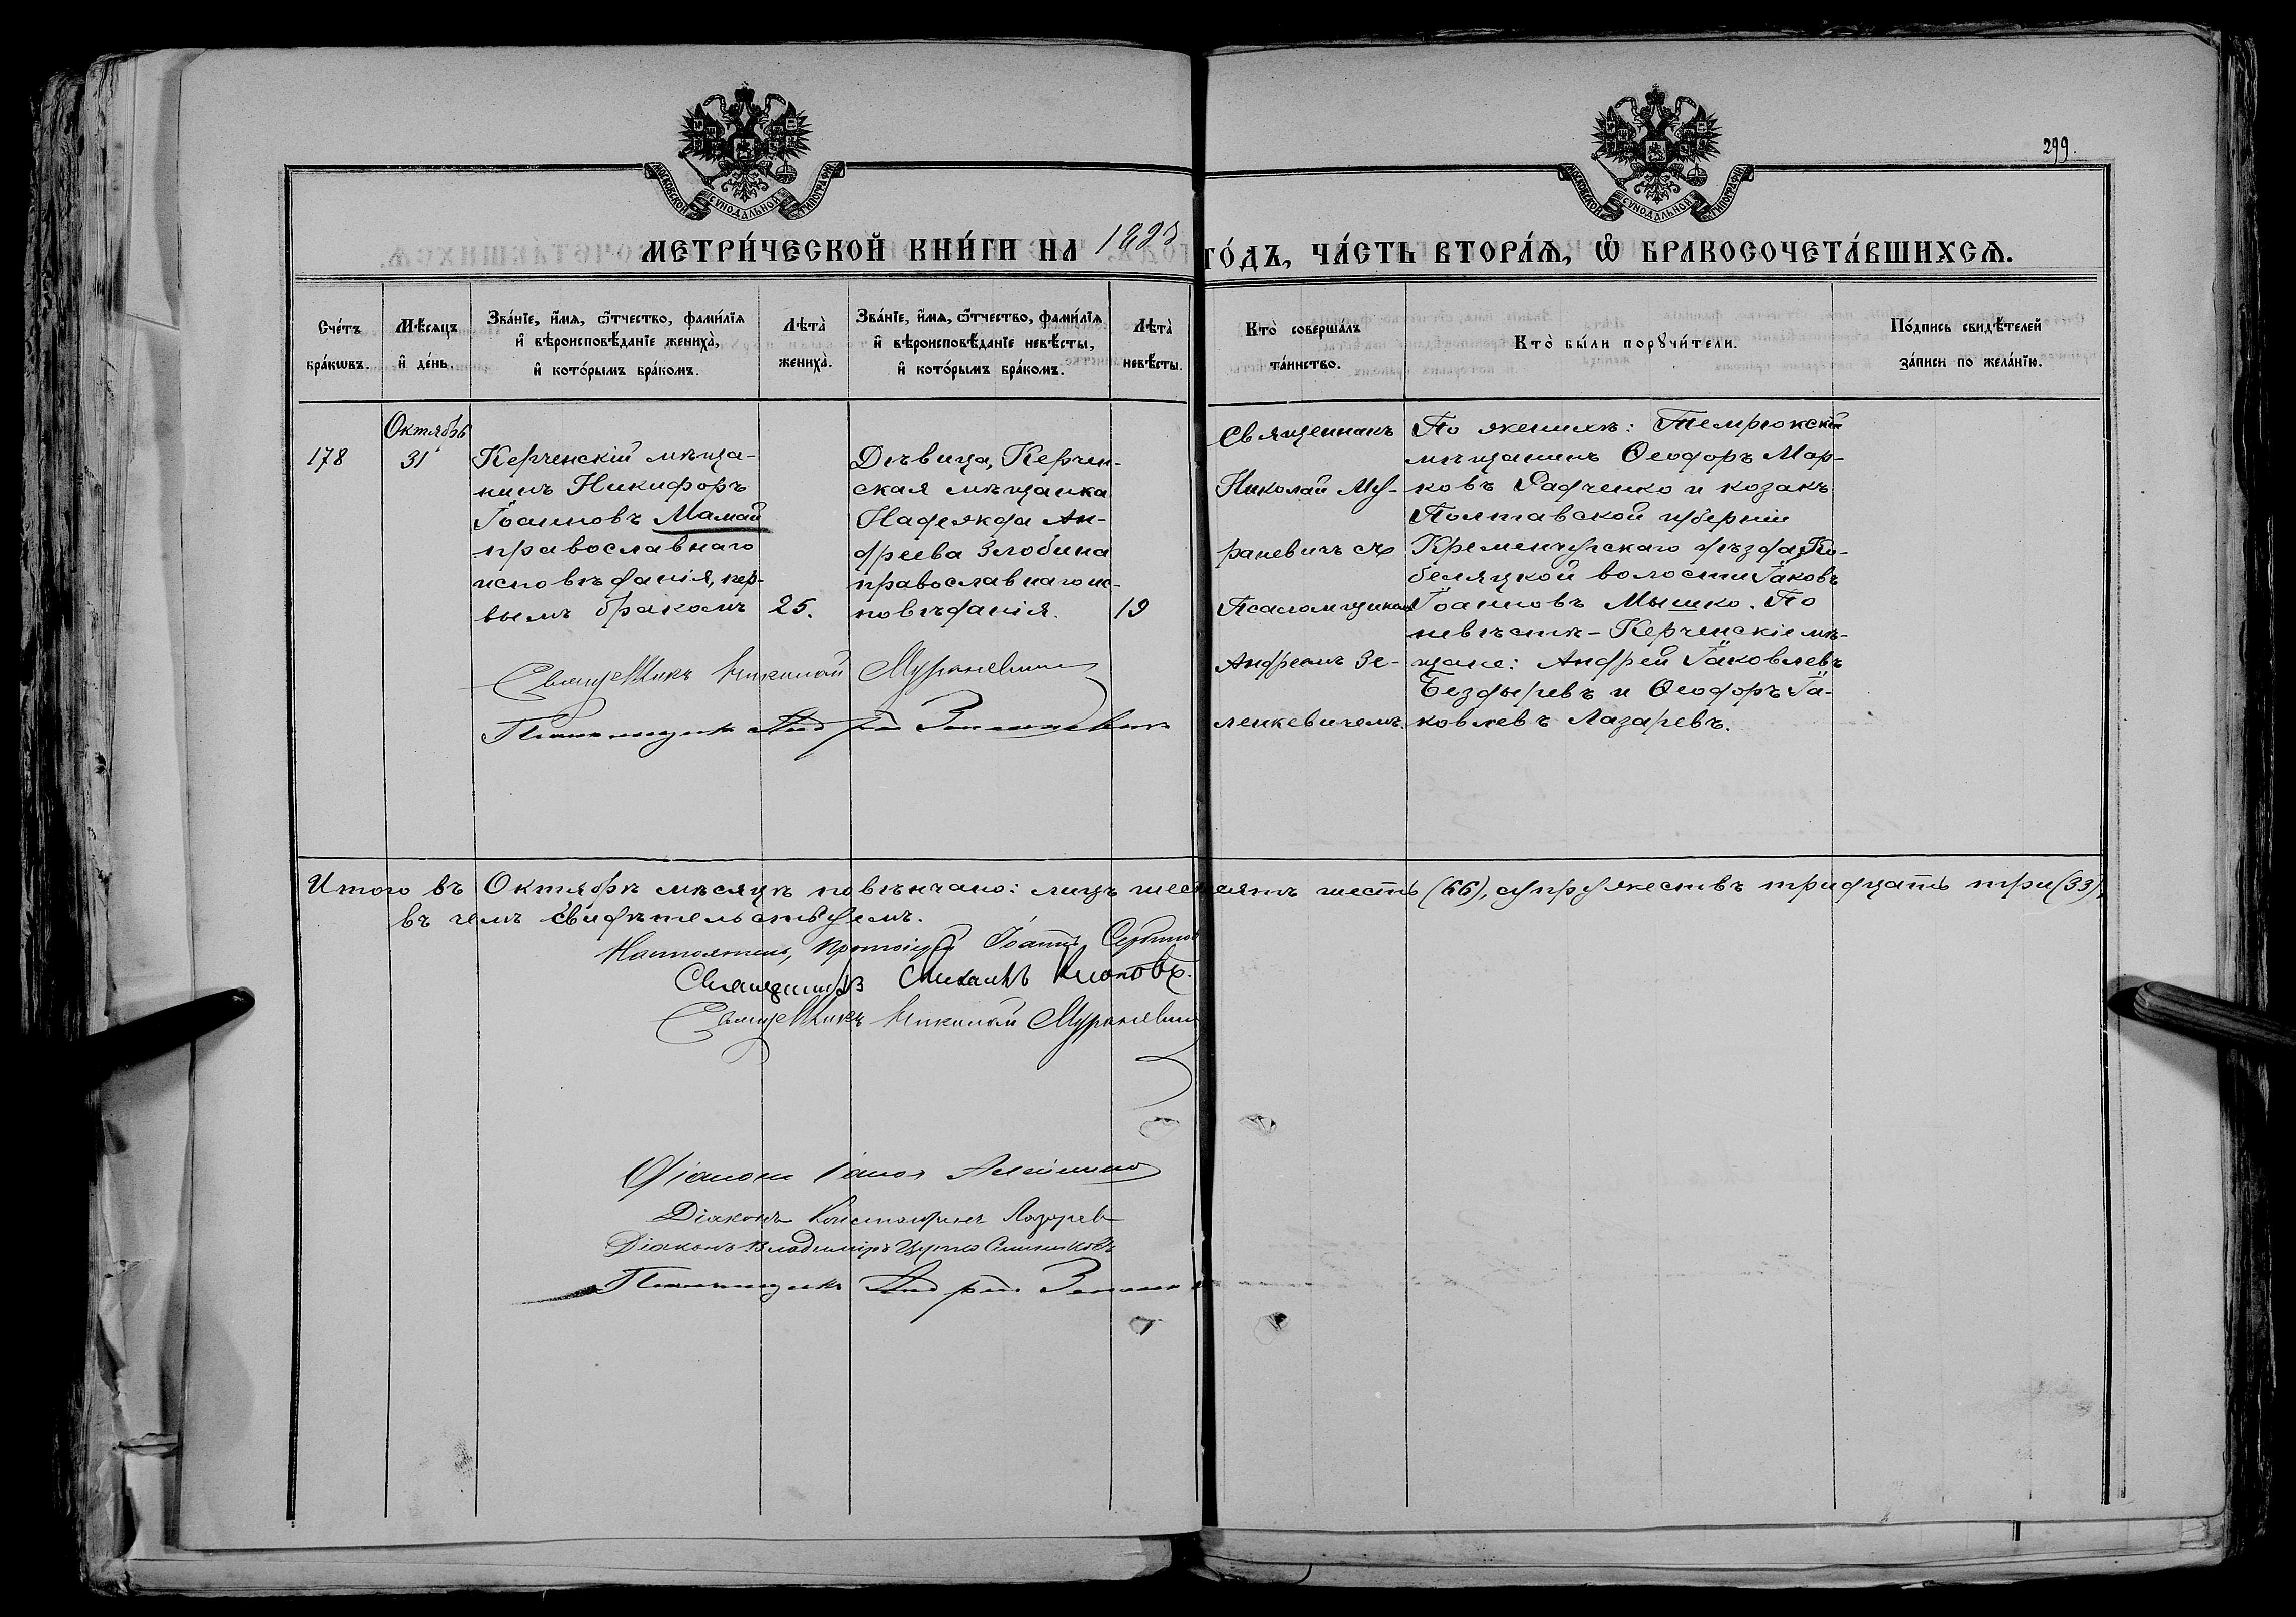 299.
МОСКОВСКОЙ СѴНОДАЛЬНОЙ ТИПОГРАФІИ
МОСКОВСКОЙ СѴНОДАЛЬНОЙ ТИПОГРАФІИ
МЕТРИ́ЧЕСКОЙ КНИ́ГИ НА
ГО́ДЪ, ЧА́СТЬ ВТОРА́Ѧ, Ѽ БРАКОСОЧЕТА́ВШИХСѦ.
Сче́тъ
бра́кѡвъ.
Мѣ́сяцъ
и҆ де́нь.
Зва́нїе, и҆́мѧ, ѻ҆́тчество, фами́лїѧ
и҆ вѣроисповѣ́данїе жениха̀,
и҆ кото́рымъ бра́комъ.
Лѣта̀
жениха̀.
Зва́нїе, и҆́мѧ, ѻ҆́тчество, фами́лїѧ
и҆ вѣроисповѣ́данїе невѣ́сты,
и҆ кото́рымъ бра́комъ.
Лѣта̀
невѣ́сты.
Кто̀ соверша́лъ
та́инство.
Кто̀ бы́ли порꙋчи́тели.
По́дпись свидѣ́телей
за́писи по жела́нїю.
178
Октябрь
31
Керченскій мѣща-
нинъ Никифоръ
Іоанновъ Мамай
православнаго
исповѣданія, пер-
вымъ бракомъ
25.
Дѣвица, Керчен-
ская мѣщанка
Надежда Ан-
дреева Злобина
православнаго ис-
повѣданія.
19
Священникъ
Николай Му-
раневичъ съ
Псаломщикомъ
Андреемъ Зе-
ленкевичемъ.
По женихѣ: Темрюкскій
мѣщанинъ Ѳеодоръ Мар-
ковъ Радченко и козакъ
Полтавской губерніи
Кременчугскаго уѣзда, Ко-
беляцкой волости Іаковъ
Іоанновъ Мышко. По
невѣстѣ - Керченскіе мѣ-
щане: Андрей Іаковлевъ
Бездыревъ и Ѳеодоръ Іа-
ковлевъ Лазаревъ.
Священникъ Николай Мураневичъ
Псаломщикъ Андрей Зеленкевичъ
Итого въ Октябрѣ мѣсяцѣ повѣнчано: лицъ шестьдесятъ шесть (66), супружествъ тридцать три (33),
въ чемъ свидѣтельствуемъ.
Настоятель, Протоіерей Іоаннъ Сербиновъ
Священникъ Михаилъ
Священникъ Николай Мураневичъ
Діаконъ
Діаконъ Константинъ Лазаревъ
Діаконъ Владиміръ
Псаломщикъ Андрей